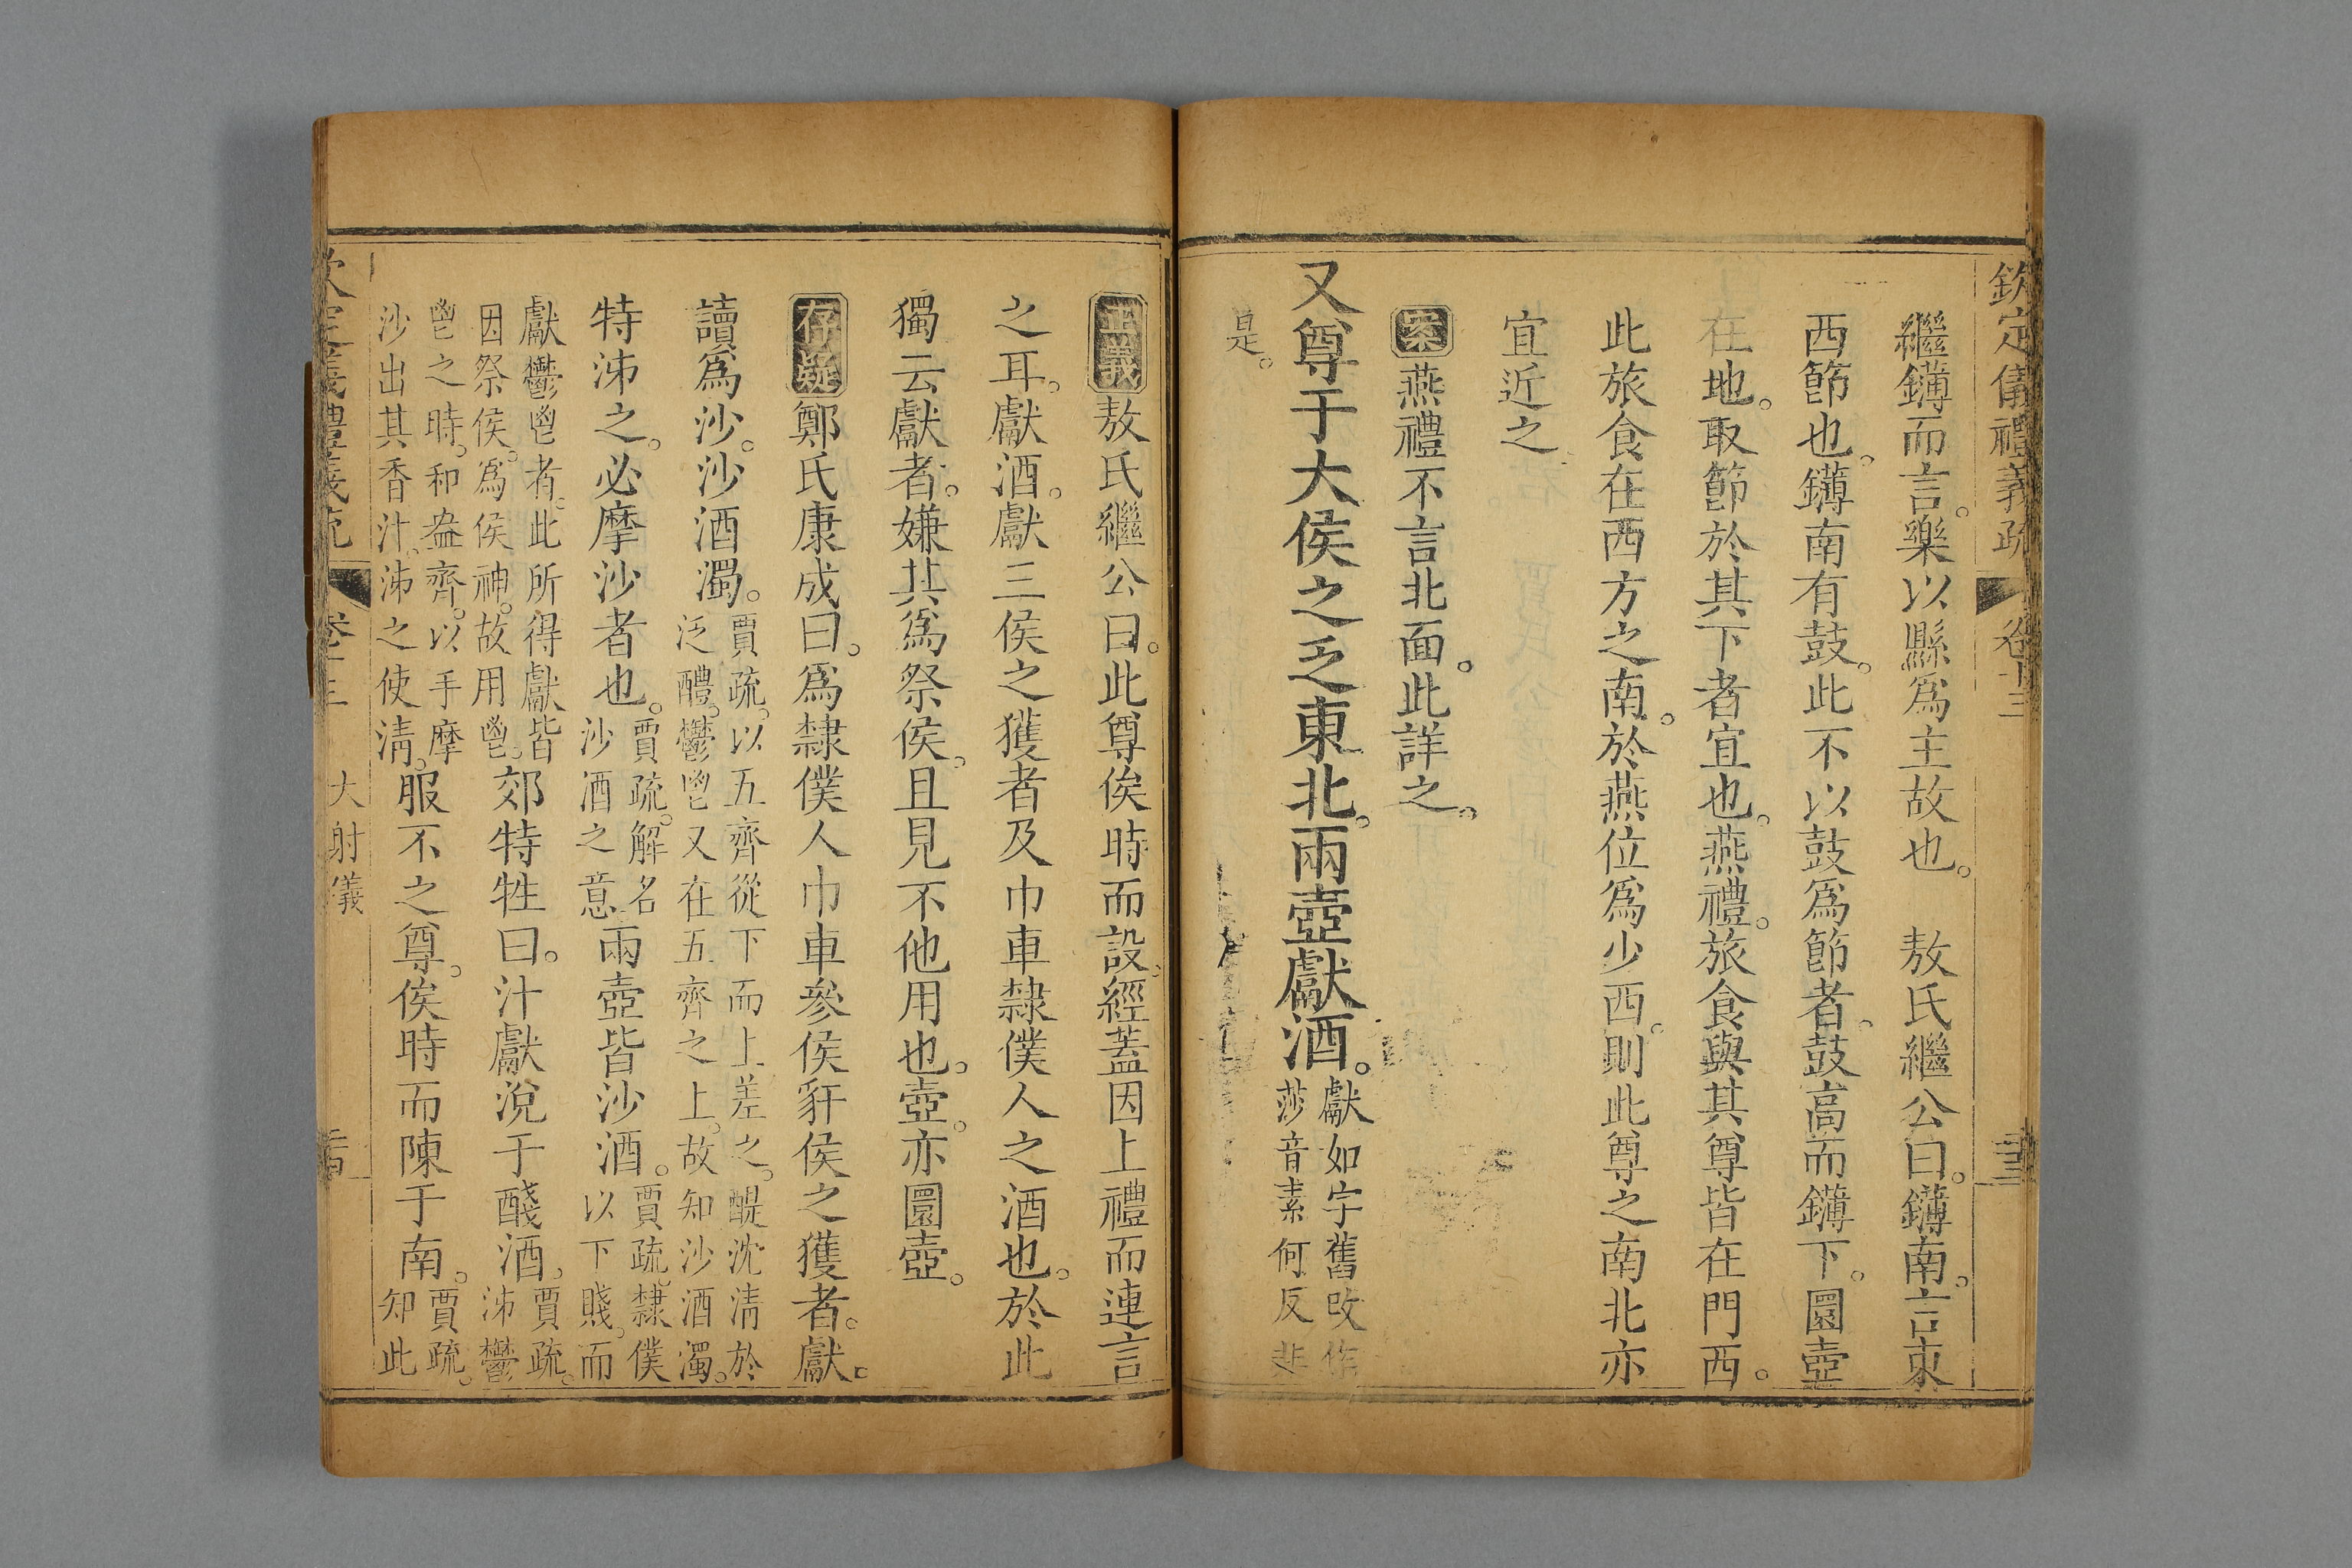 欽定儀禮義疏 卷十三
繼鑮而言。樂以縣爲主故也。 敖氏繼公曰。鑮南。言東
西節也。鑮南有鼓。此不以鼓爲節者。鼓高而鑮下。圜壺
在地。取節於其下者宜也。燕禮。旅食與其尊皆在門西。
此旅食在西方之南。於燕位爲少西。則此尊之南北亦
宜近之
案燕禮不言北面。此詳之。
又尊于大侯之乏東北。兩壺獻酒。獻如字舊改作莎音素何反非
是。
正義敖氏繼公曰。此尊俟時而設。經蓋因上禮而連言
之耳。獻酒。獻三侯之獲者及巾車隸僕人之酒也。於此
獨云獻者。嫌其爲祭侯。且見不他用也。壺。亦圜壺。
存疑鄭氏康成曰。爲隸僕人巾車參侯豻侯之獲者。獻。
讀爲沙。沙酒濁。賈疏。以五齊從下而上差之。醍沈清於泛醴。鬱鬯又在五齊之上。故知沙酒濁。
特泲之。必摩沙者也。賈疏。解名沙酒之意兩壺皆沙酒。賈疏。隸僕以下賤。而
獻鬱鬯者。此所得獻皆因祭侯。爲侯神。故用鬯。郊特牲曰。汁獻涗于醆酒。賈疏。泲鬱
鬯之時。和盎齊。以手摩沙出其香汁。泲之使清。服不之尊。俟時而陳于南。賈疏。知此
欽定儀禮義疏 卷十三 大射儀